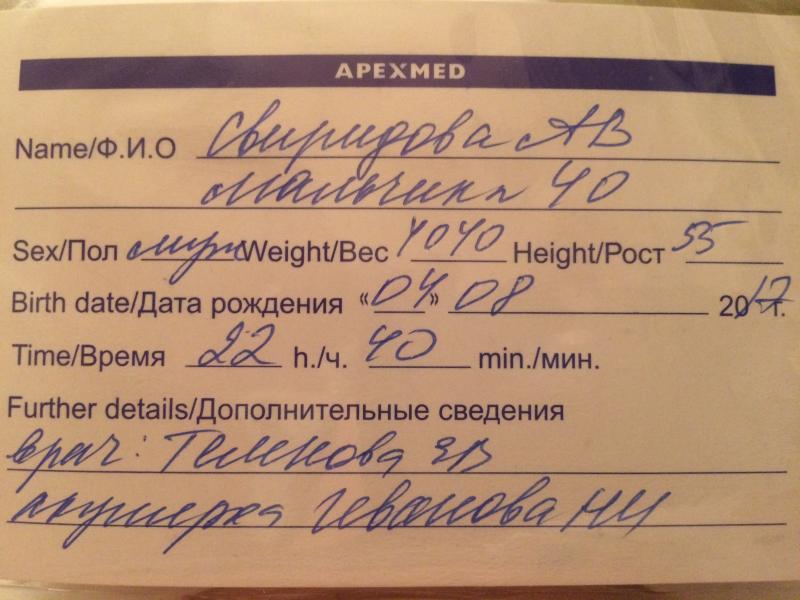 APEXMED
Name/Ф.И.О Свиридова АВ
мальчик 40
Sex/Пол муж Weight/Вес 4040 Height/Рост 55
Birth date/Дата рождения “04” 08 2017г.
Time/Время 22 h./ч. 40 min./мин.
Further details/Дополнительные сведения
врач: Теленкова ЕВ
акушерка Иванова НИ